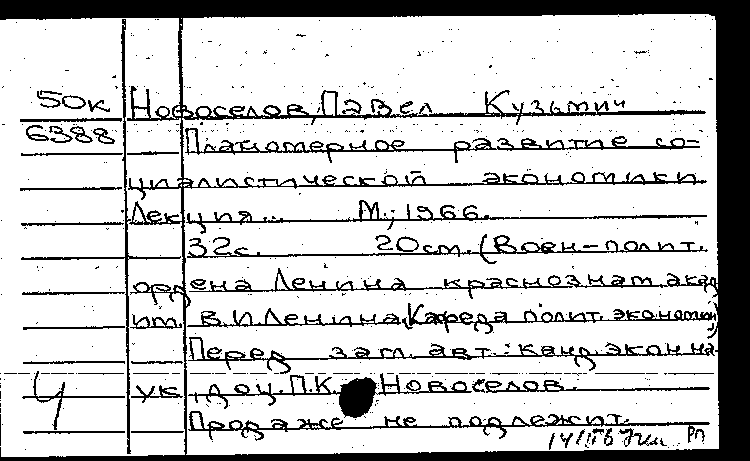 50к Новоселов, Павел Кузьмич
6388 Планомерное развитие со-
циалистической экономики.
Лекция... М., 1966.
32с. 20см. (Воен-полит.
ордена Ленина краснознам. акад.
им. В.И.Ленина. Кафедра полит. экономии)
Перед загл. авт.: канд. экон. на-
ук, доц. П.К. Новоселов.
Продаже не подлежит.
РП